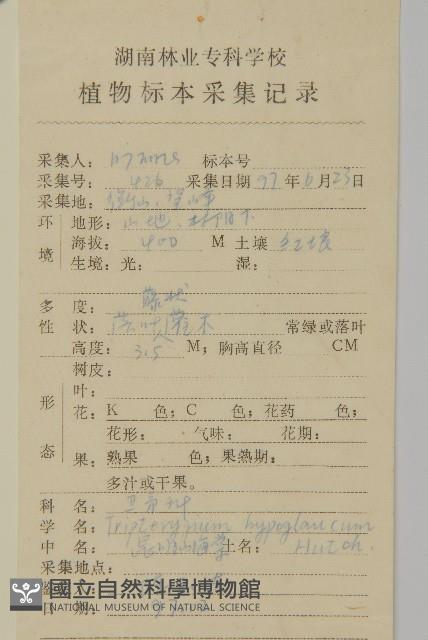 湖南林业专科学校
植物标本采集记录
采集人： 标本号
采集号： 426 采集日期 97 年 6 月 23 日
采集地： 衡山、
环境 地形： 山地、林阴下
海拔： 400 M 土壤 红壤
生境：光： 湿：
多度： 藤状
性状： 落叶灌木 常绿或落叶
高度： 3.5 M；胸高直径 CM
树皮：
形态 叶：
花：K 色；C 色；花药 色；
花形： 气味： 花期：
果：熟果 色；果熟期：
多汁或干果。
科名： 卫矛科
学名： Tripterygium hypoglaucum
中名： 昆明山海棠 土名： Hutch.
采集地点：
國立自然科學博物館
NATIONAL MUSEUM OF NATURAL SCIENCE